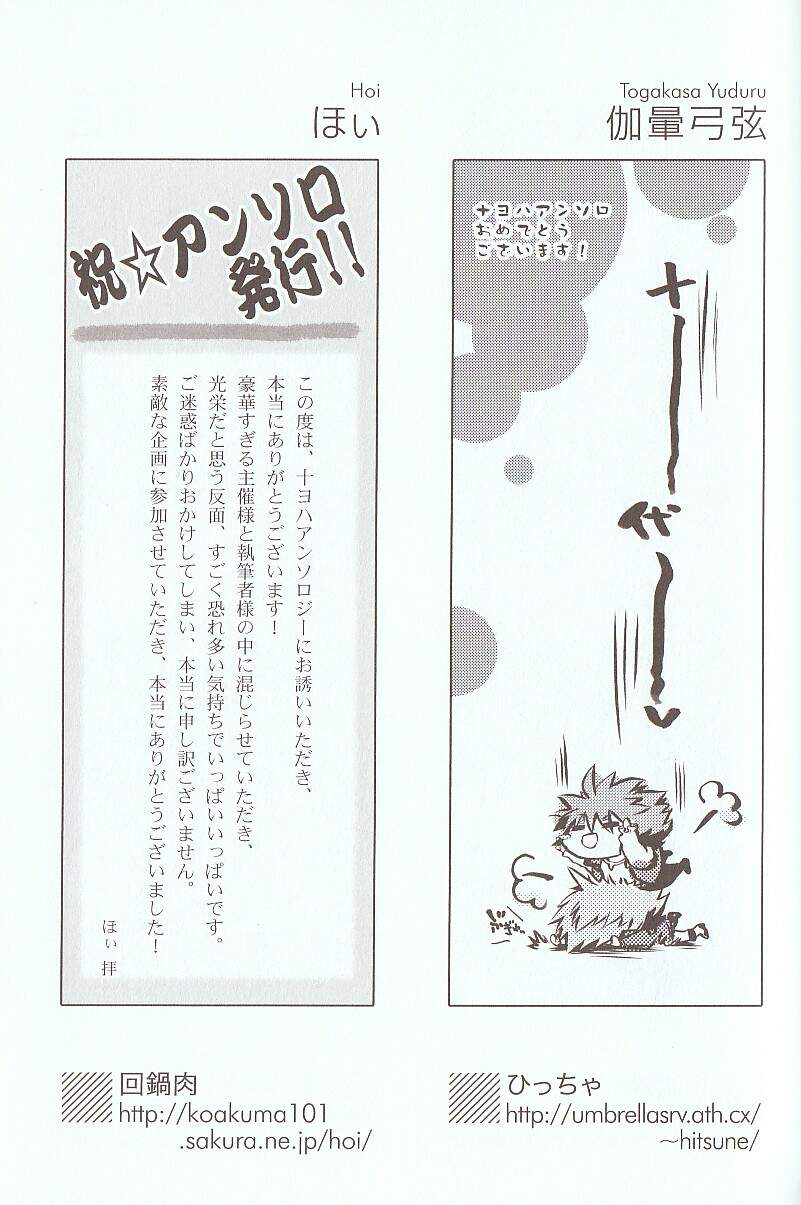 Togakasa Yuduru
伽暈弓弦
十ヨハアンソロ
おめでとう
ございます！
十――代――
ひっちゃ
http://umbrellasrv.ath.cx/
~hitsune/
Hoi
ほぃ
祝☆アンソロ
発行!!
この度は、十ヨハアンソロジーにお誘いいただき、
本当にありがとうございます！
豪華すぎる主催様と執筆者様の中に混じらせていただき、
光栄だと思う反面、すごく恐れ多い気持ちでいっぱいいっぱいです。
ご迷惑ばかりおかけしてしまい、本当に申し訳ございません。
素敵な企画に参加させていただき、本当にありがとうございました！
ほぃ 拝
回鍋肉
http://koakuma101
.sakura.ne.jp/hoi/